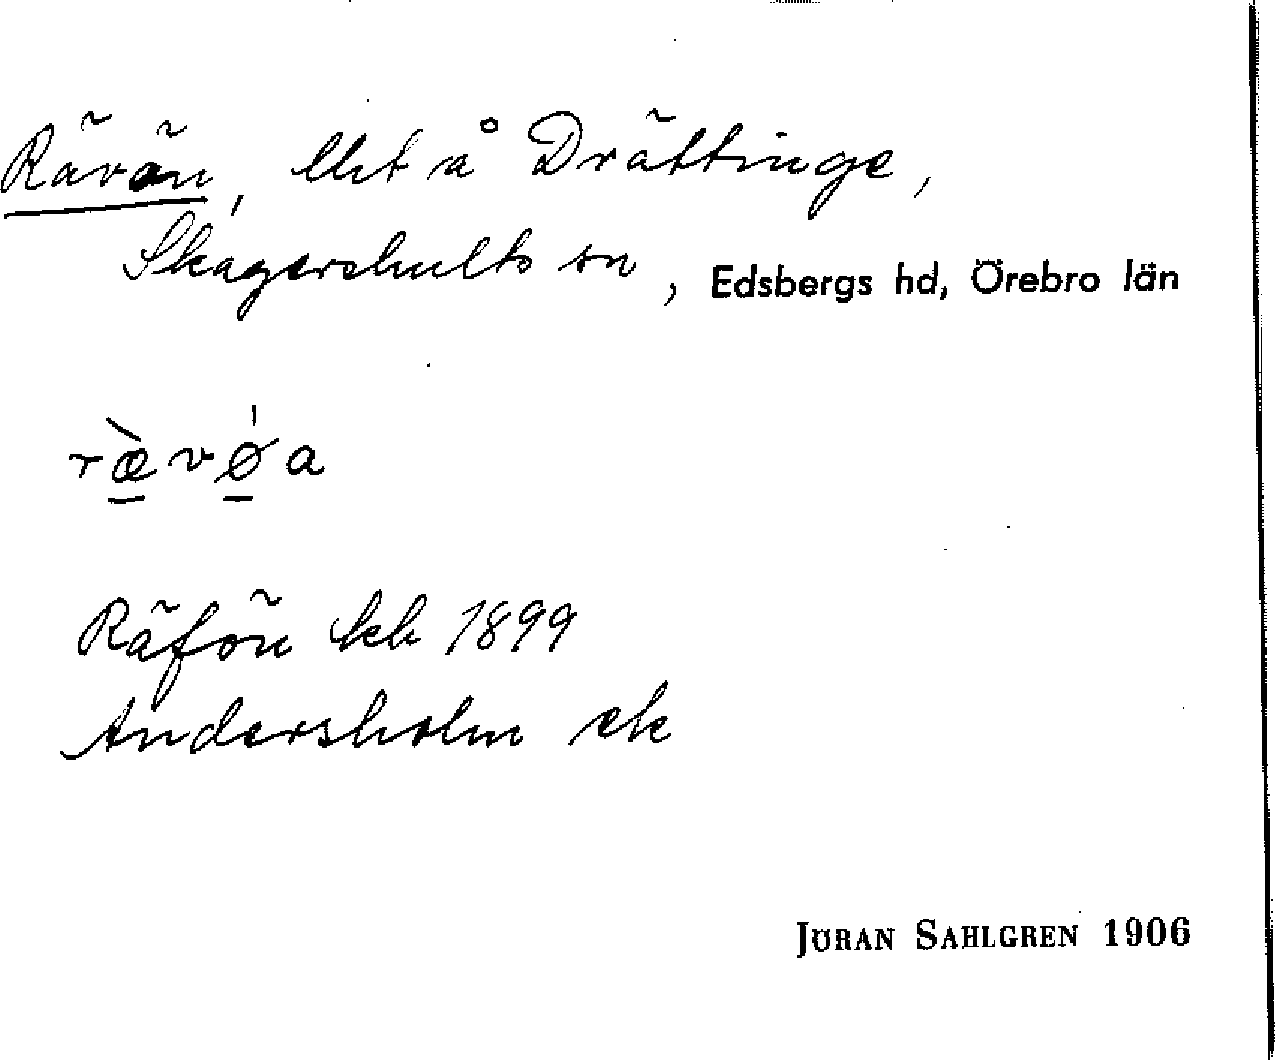 Rävön, lht å Drättinge,
Skagershults sn, Edsbergs hd, Örebro län
rævøa
Räfön kk 1899
Andersholm ek
JÖRAN SAHLGREN 1906